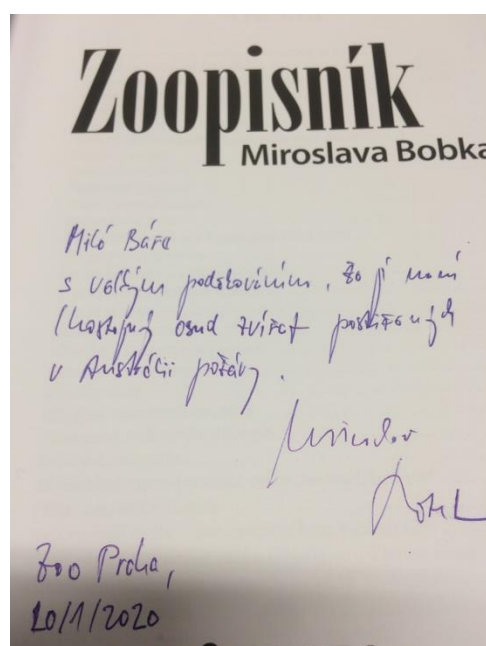 Zoopisník
Miroslava Bobka
Milé Báře
s velkým poděkováním, že jí není
lhostejný osud zvířat postižených
v Austrálii požáry.
Miroslav
Bobek
Zoo Praha,
20/1/2020